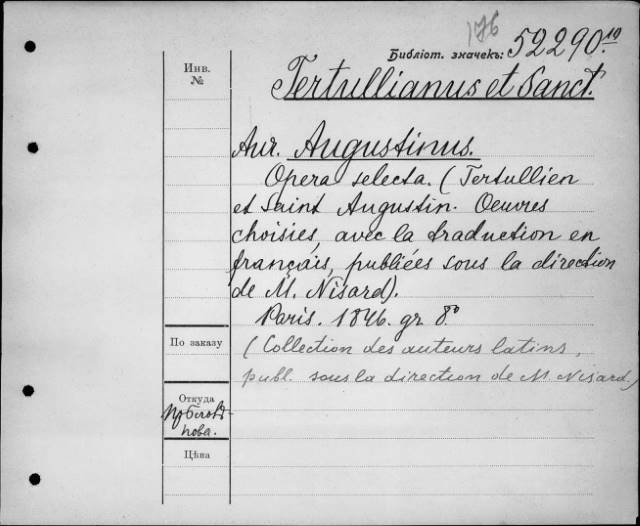 176
Библіот. значекъ: 52290.10
Инв.
№
Tertullianus et Sanct.
Aur. Augustinus.
Opera selecta. (Tertullien
et Saint Augustin. Oeuvres
choisies, avec la traduction en
français, publiées sous la direction
de M. Nisard).
Paris. 1846. gr 8°
По заказу
(Collection des auteurs latins,
publ. sous la direction de M. Nisard)
Откуда
Цѣна